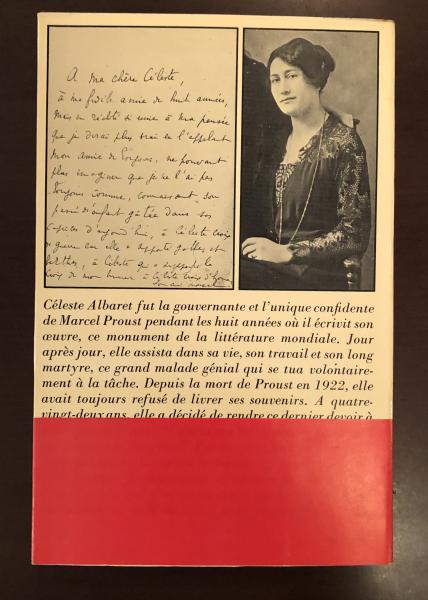 A ma chère Céleste,
à ma fidèle amie de huit années,
mais en réalité si unie à ma pensée
que je dirai plus vrai en l'appelant
mon amie de toujours, ne pouvant
plus imaginer que je ne l'ai pas
toujours connue, connaissant son
passé d'enfant gâtée dans ses
caprices d'aujourd'hui, à Céleste croix
de guerre car elle a supporté gothas et
berthas, à Céleste qui a supporté la
croix de mon humeur à Céleste croix d'honneur
Son ami
Céleste Albaret fut la gouvernante et l'unique confidente
de Marcel Proust pendant les huit années où il écrivit son
œuvre, ce monument de la littérature mondiale. Jour
après jour, elle assista dans sa vie, son travail et son long
martyre, ce grand malade génial qui se tua volontaire-
ment à la tâche. Depuis la mort de Proust en 1922, elle
avait toujours refusé de livrer ses souvenirs. A quatre-
vingt-deux ans, elle a décidé de rendre ce dernier devoir à